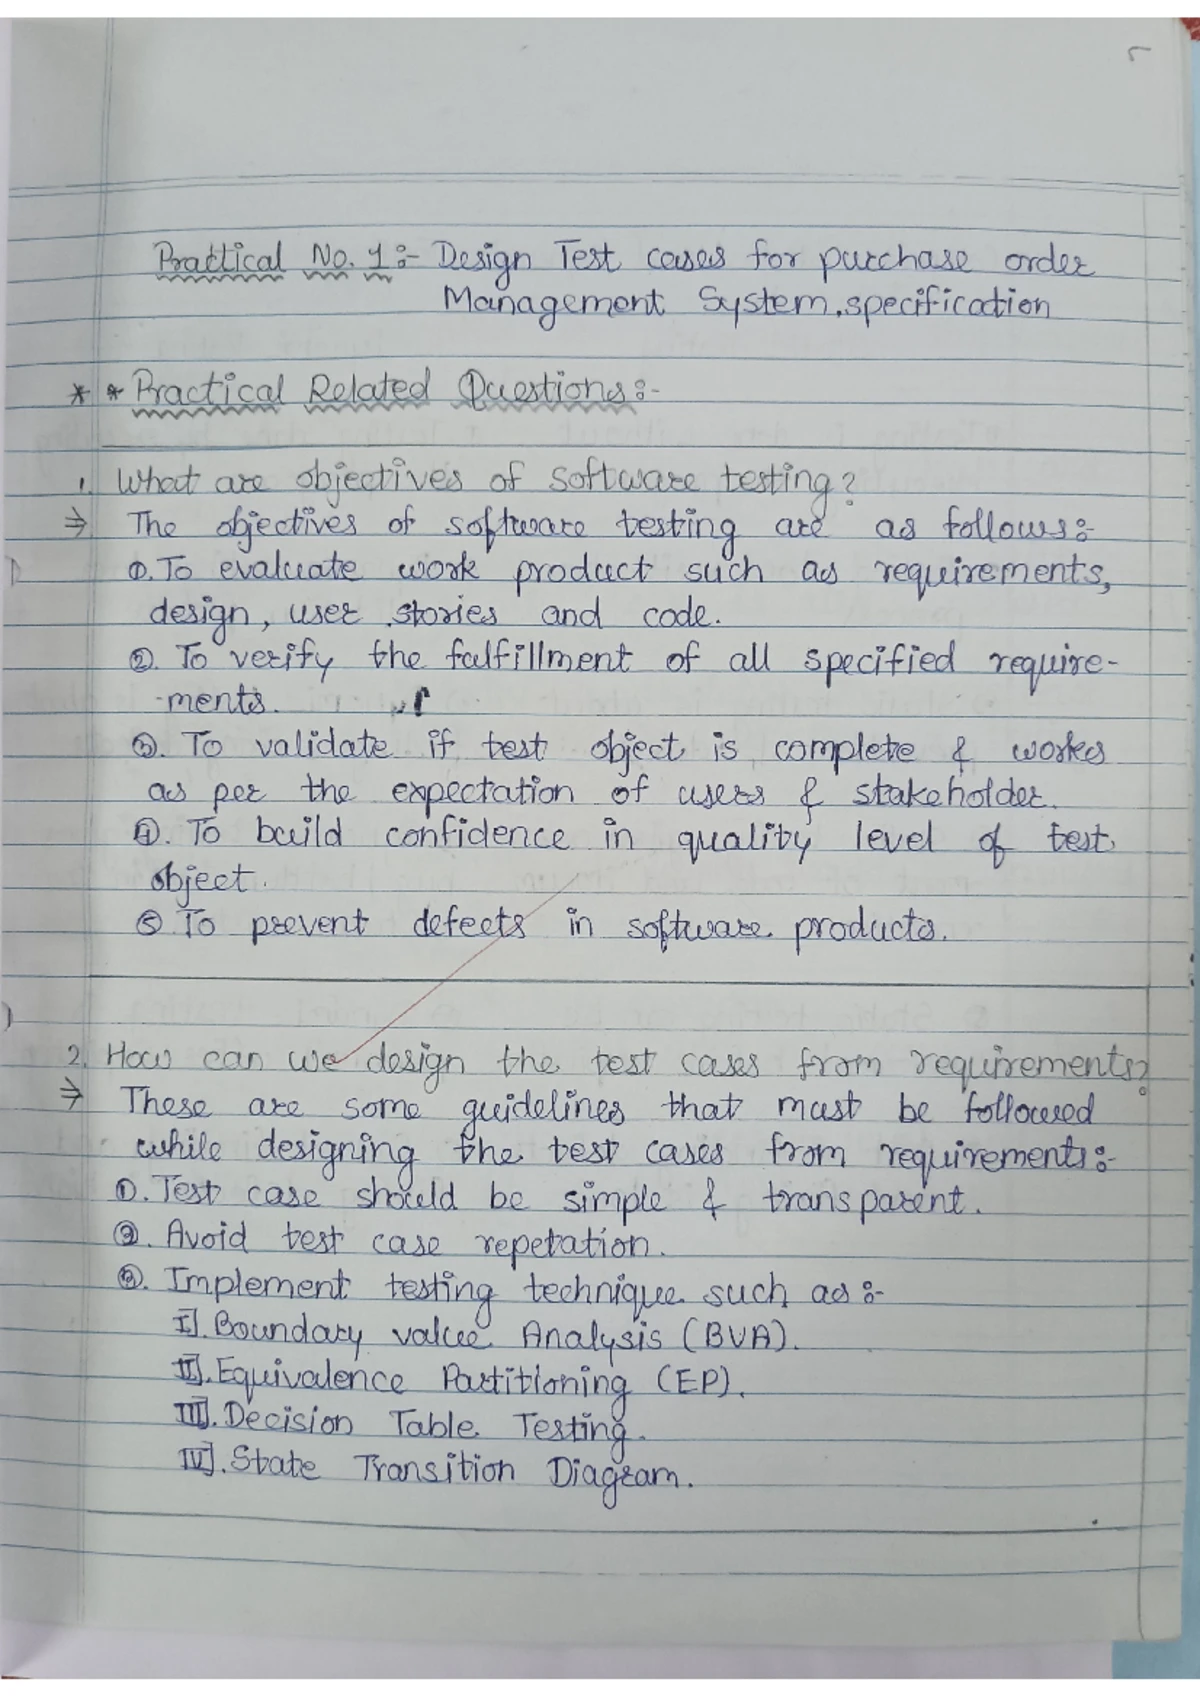 Practical No. 1:- Design Test cases for purchase order
Management System specification
* * Practical Related Questions:-
1. What are objectives of software testing?
⇒ The objectives of software testing are as follows:-
①. To evaluate work product such as requirements,
design, user stories and code.
②. To verify the fulfillment of all specified require-
-ments.
③. To validate if test object is complete & works
as per the expectation of users & stakeholder.
④. To build confidence in quality level of test
object.
⑤ To prevent defects in software products.
2. How can we design the test cases from requirements?
⇒ These are some guidelines that must be followed
while designing the test cases from requirements:-
①. Test case should be simple & transparent.
②. Avoid test case repetation.
③. Implement testing technique such as:-
I]. Boundary value Analysis (BVA).
II]. Equivalence Partitioning (EP).
III]. Decision Table Testing.
IV]. State Transition Diagram.